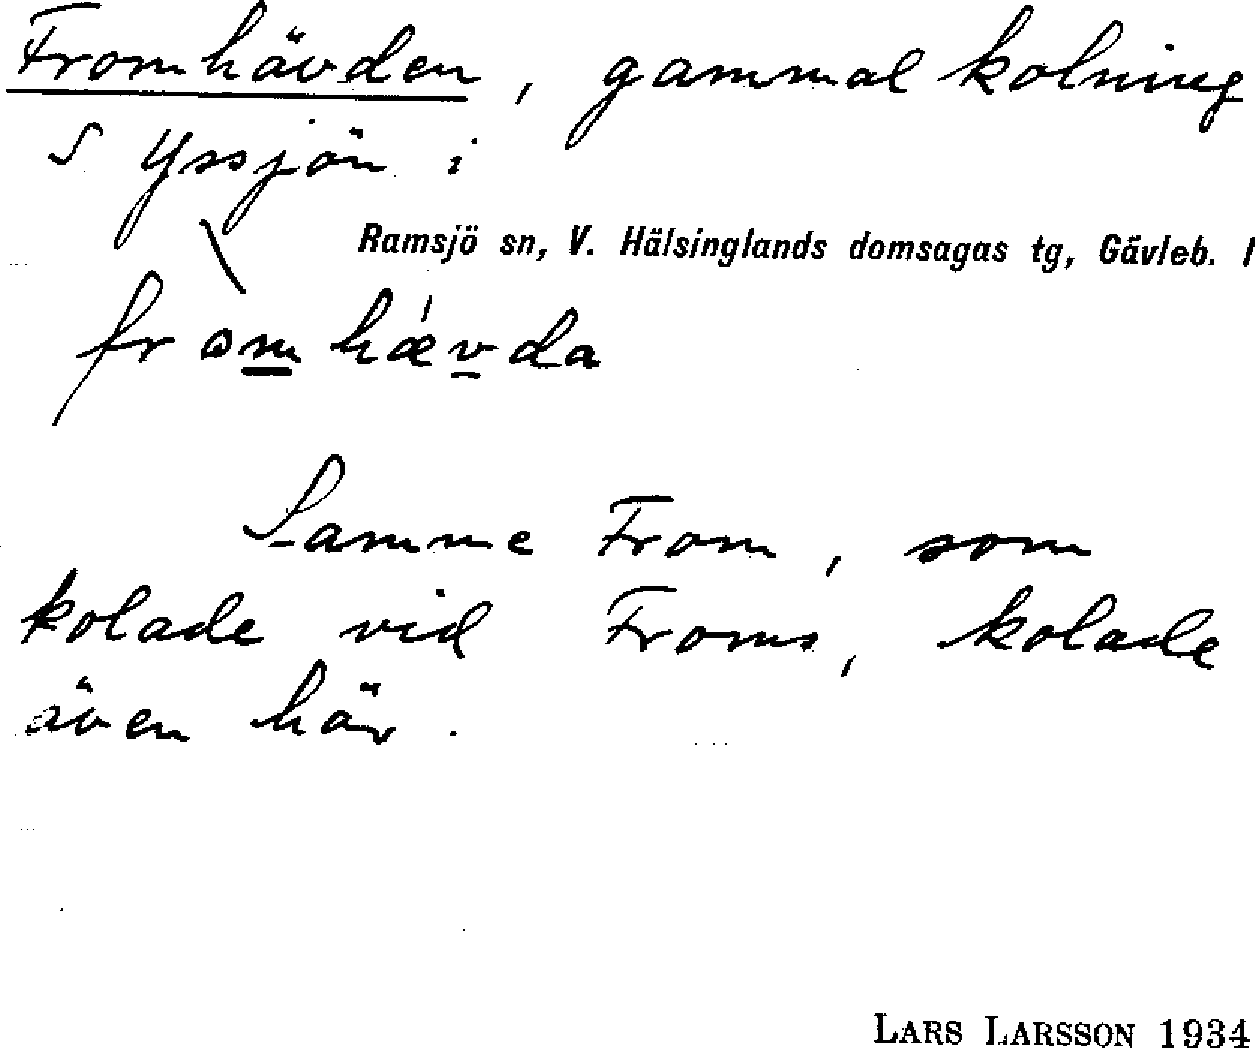 Fromhävden, gammal kolning
S Yssjön i
Ramsjö sn, V. Hälsinglands domsagas tg, Gävleb. l
fròmhǽvda
Samme From, som
kolade vid Froms, kolade
även här.
LARS LARSSON 1934